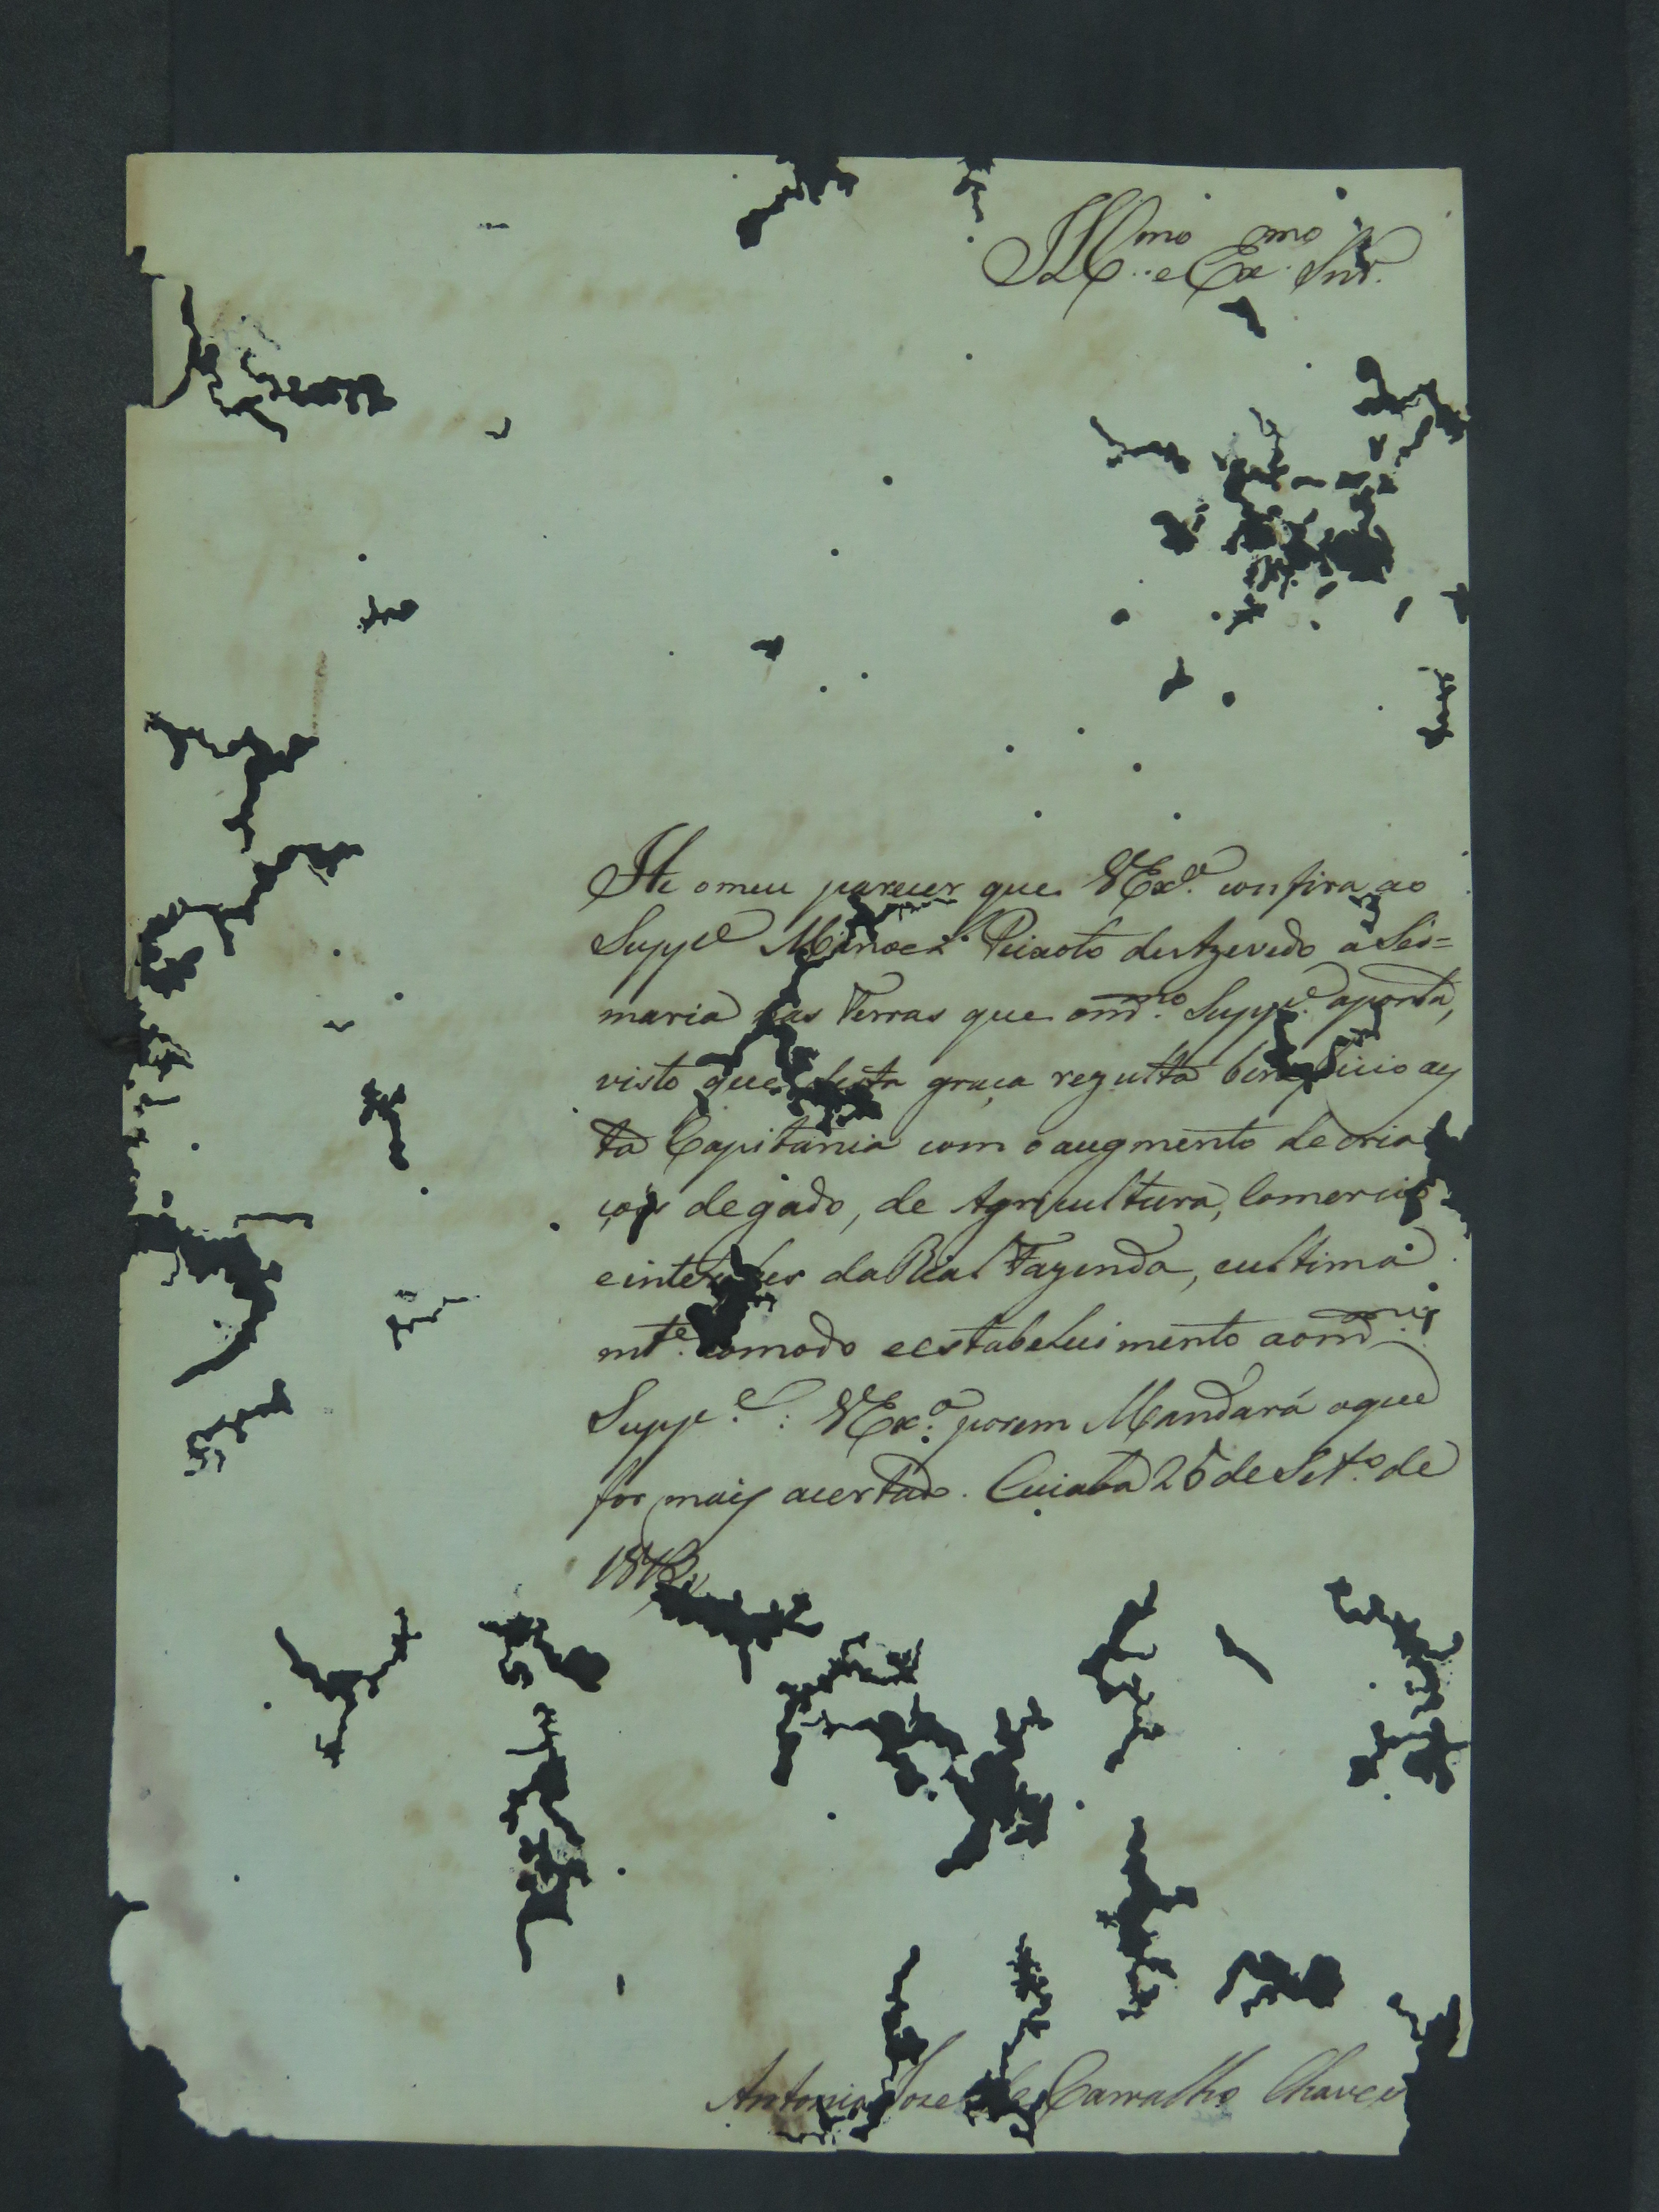 Ill.mo e Ex.mo Snr.
He o meu parecer que VEx.a confira ao
Supp.e Manoel Peixoto de Azevedo a Ses=
maria nas Terras que o md.mo Supp.e aponta,
visto que desta graça rezulta beneficio a es
ta Capitania com o augmento de cria
çoes de gado, de Agricultura, Comercio
e interesses da Real Fazenda, e ultima
mt.e comodo e estabelecimento ao md.mo
Supp.e: VEx.a porem Mandará o que
for mais acertado. Cuiaba 25 de Set.o de
Antonio Jose de Carvalho Chaves